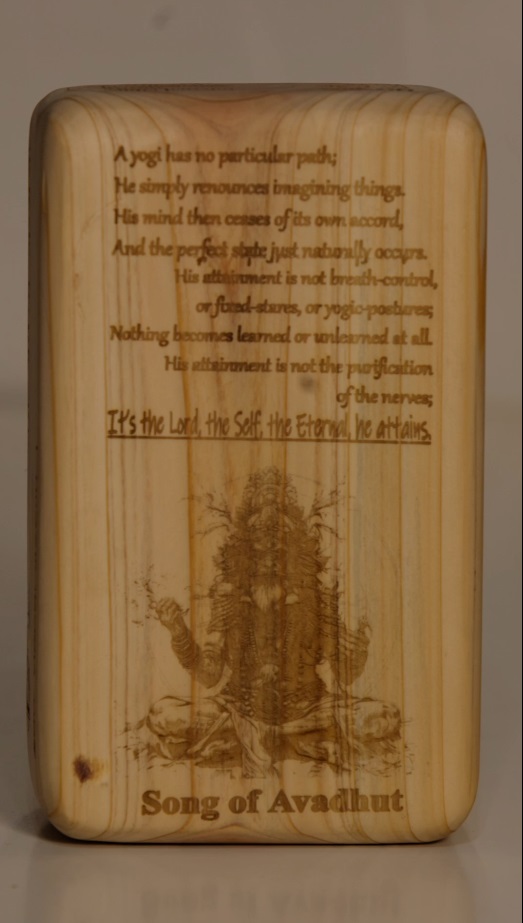 A yogi has no particular path;
He simply renounces imagining things.
His mind then ceases of its own accord,
And the perfect state just naturally occurs.
His attainment is not breath-control,
or fixed-stares, or yogic-postures;
Nothing becomes learned or unlearned at all.
His attainment is not the purification
of the nerves;
It's the Lord, the Self, the Eternal, he attains.
Song of Avadhut